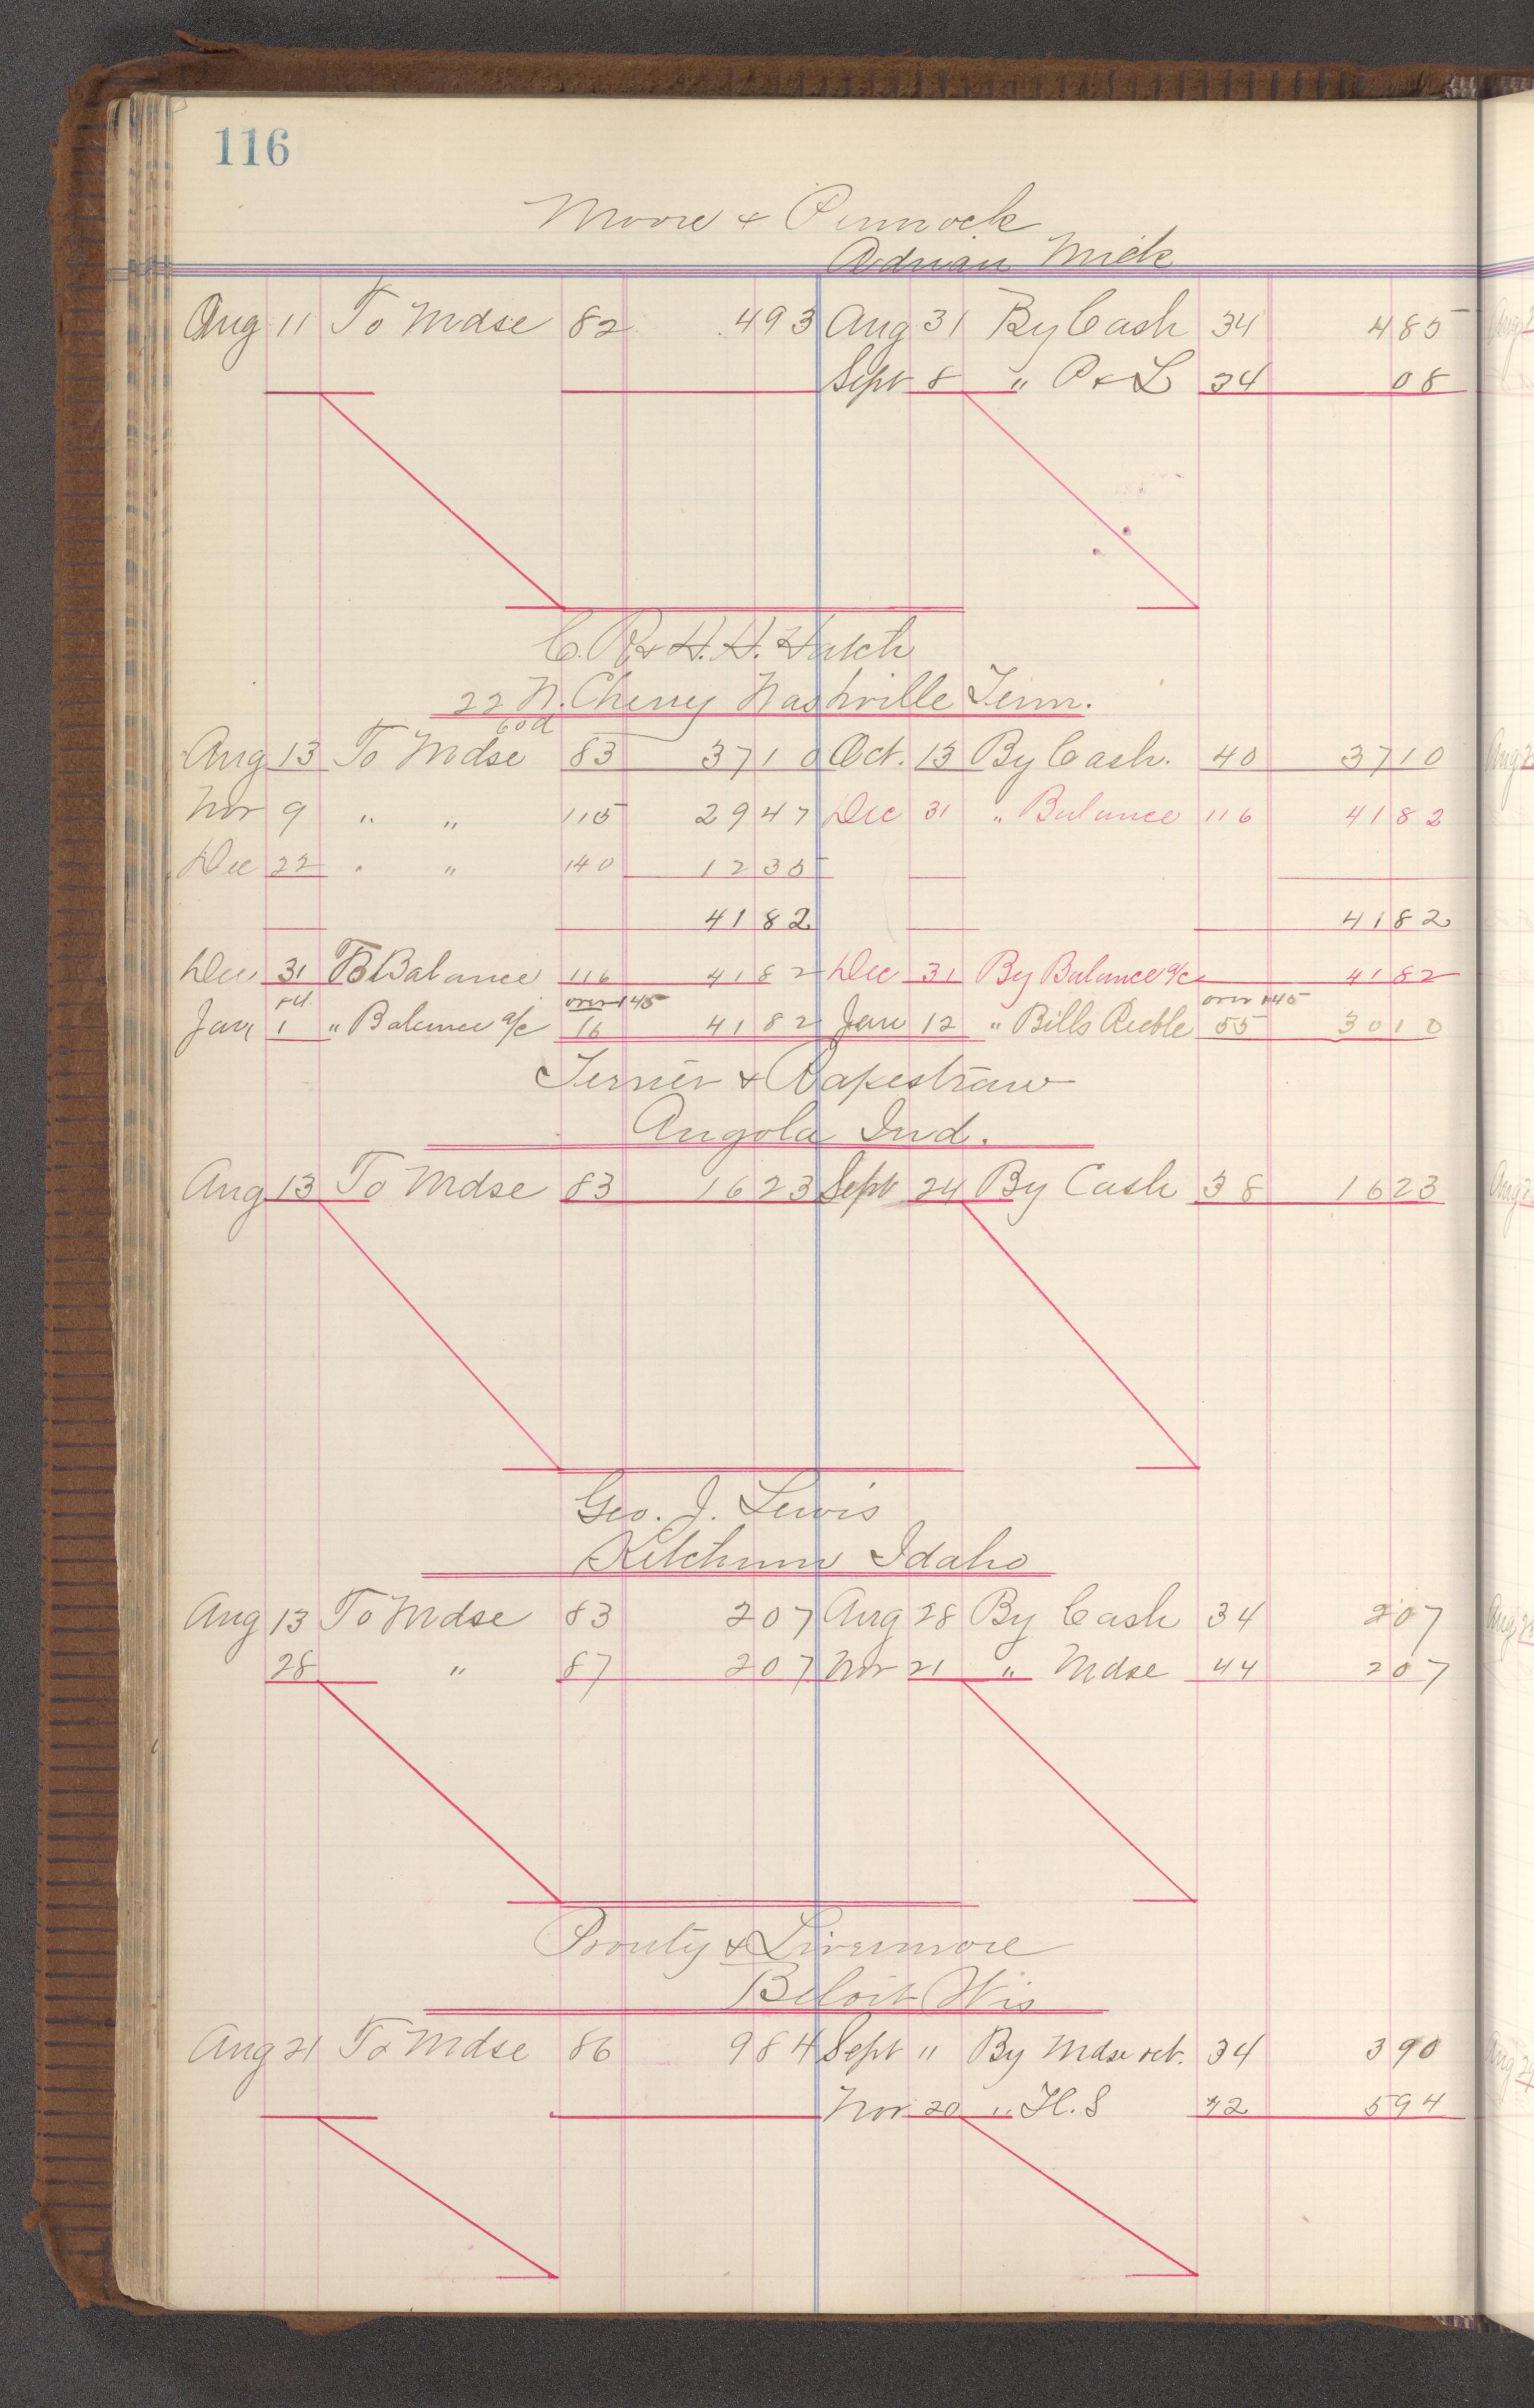 116
Moore & Pennock
Adrian Mich
Aug 11 To Mdse 82 4 93 Aug 31 By Cash 34 4 85
Sept 8 " P & L 34 08
C. R. & H. H. Hatch
22 N. Cherry Nashville Tenn.
60 d
Aug 13 To Mdse 83 37 10 Oct. 13 By Cash. 40 37 10
Nov 9 " " 115 29 47 Dec 31 " Balance 116 41 82
Dec 22 " " 140 12 35
41 82 41 82
Dec 31 To Balance 116 41 82 Dec 31 By Balance a/c 41 82
over 145 over 145
Jan 1 " Balance a/c 16 41 82 Jan 12 " Bills Recble 55 30 10
& Rapestraw
Angola Ind.
Aug 13 To Mdse 83 16 23 Sept 24 By Cash 38 16 23
Geo. J. Lewis
Ketchum Idaho
Aug 13 To Mdse 83 2 07 Aug 28 By Cash 34 2 07
28 " 87 2 07 Nov 21 " Mdse 44 2 07
Prouty & Livermore
Beloit Wis
Aug 21 To Mdse 86 9 84 Sept " By Mdse ret. 34 3 90
Nov 20 " H. S 42 5 94